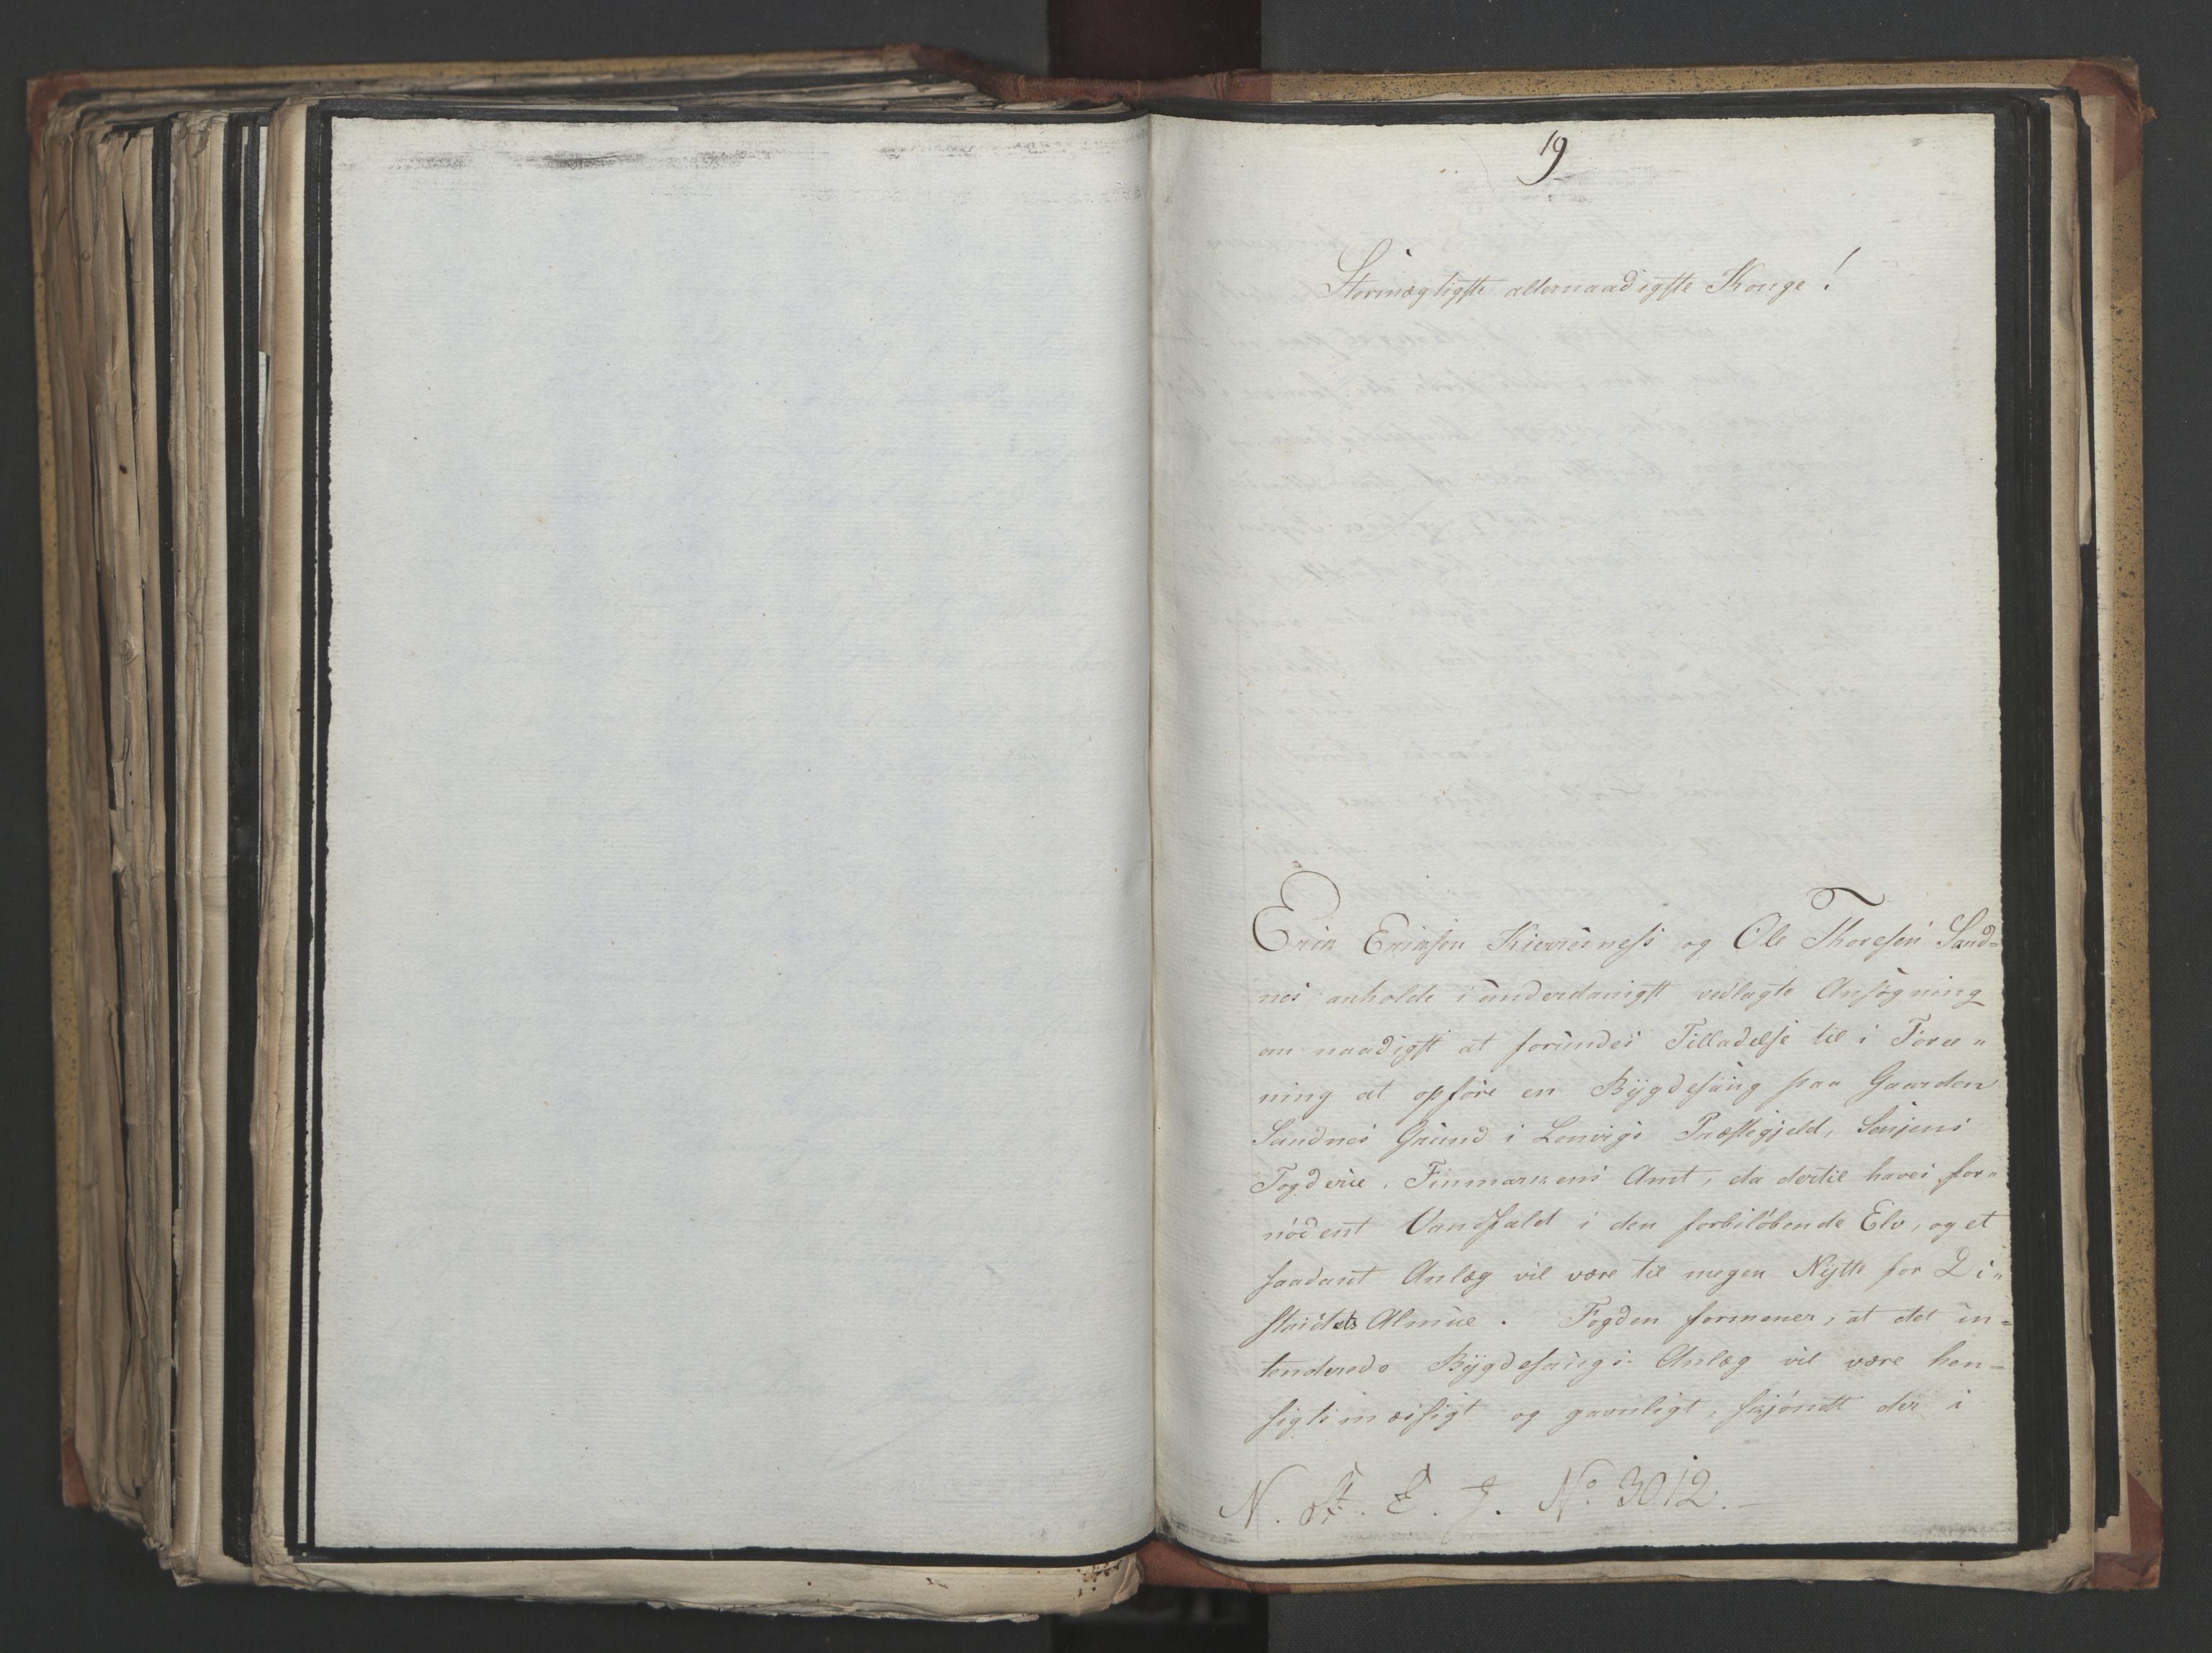 19
Stormægtigste allernaadigste Konge!
Erik Eriksen Kiævrisness og Ole Thoresen Sand=
nes anholde i underdanigst vedlagte Ansøgning
om naadigst at forundes Tilladelse til i Foree„
ning at opføre en Bygdesaug paa Gaarden
Sandnes Grund i Lenvigs Præstegjeld, Senjens
Fogderie, Finmarkens Amt, da dertil haves for„
nødent Vandfald i den forbiløbende Elv, og et
saadant Anlæg vil være til megen Nytte for Di„
strictets Almue. Fogden formener, at det in=
tenderede Bygdesaugs Anlæg vil være hen=
sigtsmæssigt og gavnligt, skjøndt der i
N. St. E. J. No. 3012.